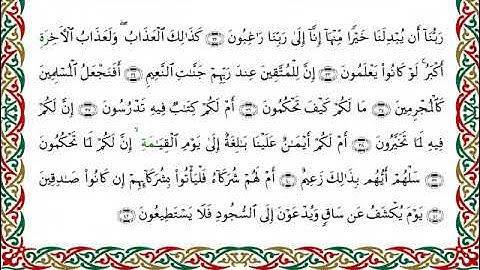 رَبُّنَآ أَن يُبْدِلَنَا خَيْرًا مِّنْهَآ إِنَّآ إِلَىٰ رَبِّنَا رَٰغِبُونَ ﴿٣٢﴾ كَذَٰلِكَ ٱلْعَذَابُ ۖ وَلَعَذَابُ ٱلْـَٔاخِرَةِ
أَكْبَرُ ۚ لَوْ كَانُوا۟ يَعْلَمُونَ ﴿٣٣﴾ إِنَّ لِلْمُتَّقِينَ عِندَ رَبِّهِمْ جَنَّـٰتِ ٱلنَّعِيمِ ﴿٣٤﴾ أَفَنَجْعَلُ ٱلْمُسْلِمِينَ
كَٱلْمُجْرِمِينَ ﴿٣٥﴾ مَا لَكُمْ كَيْفَ تَحْكُمُونَ ﴿٣٦﴾ أَمْ لَكُمْ كِتَـٰبٌ فِيهِ تَدْرُسُونَ ﴿٣٧﴾ إِنَّ لَكُمْ
فِيهِ لَمَا تَخَيَّرُونَ ﴿٣٨﴾ أَمْ لَكُمْ أَيْمَـٰنٌ عَلَيْنَا بَـٰلِغَةٌ إِلَىٰ يَوْمِ ٱلْقِيَـٰمَةِ ۙ إِنَّ لَكُمْ لَمَا تَحْكُمُونَ
﴿٣٩﴾ سَلْهُمْ أَيُّهُم بِذَٰلِكَ زَعِيمٌ ﴿٤٠﴾ أَمْ لَهُمْ شُرَكَآءُ فَلْيَأْتُوا۟ بِشُرَكَآئِهِمْ إِن كَانُوا۟ صَـٰدِقِينَ
﴿٤١﴾ يَوْمَ يُكْشَفُ عَن سَاقٍ وَيُدْعَوْنَ إِلَى ٱلسُّجُودِ فَلَا يَسْتَطِيعُونَ ﴿٤٢﴾